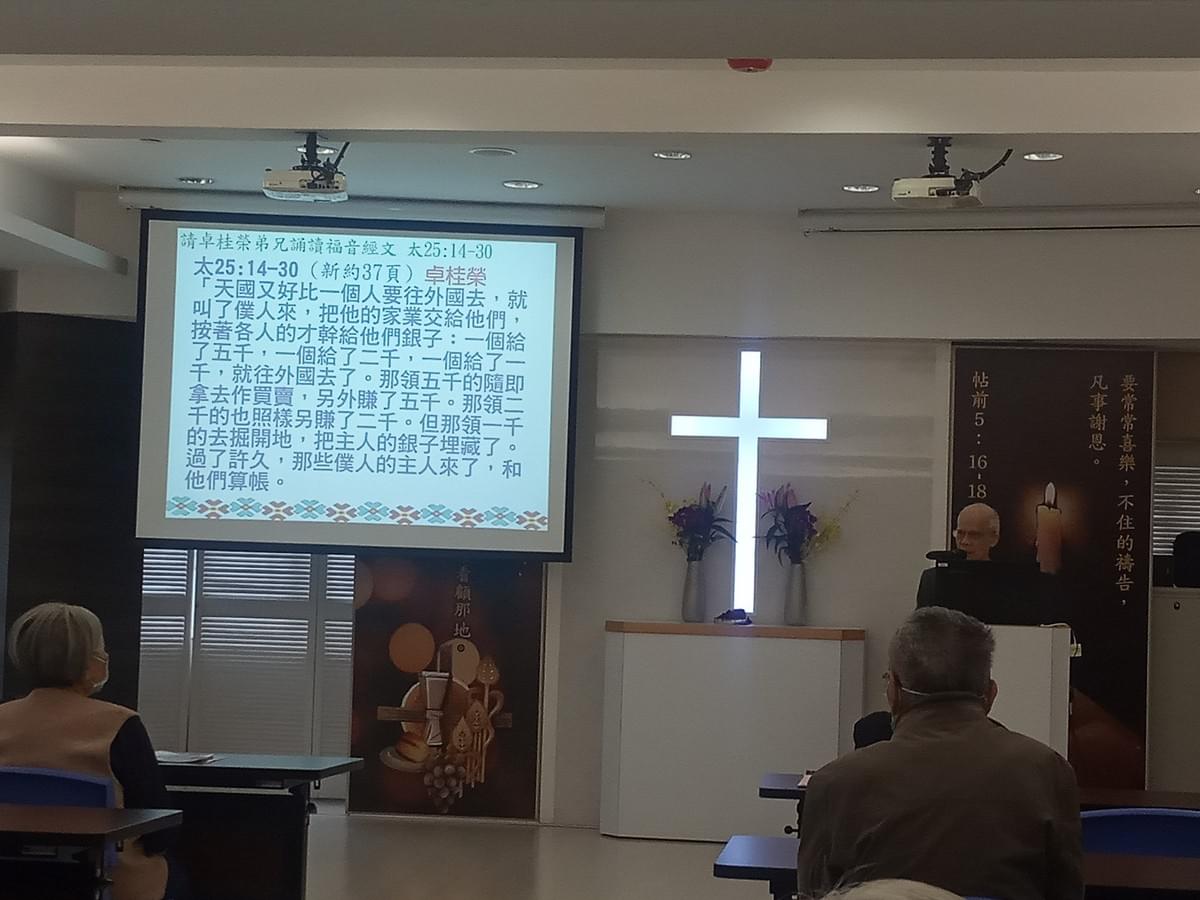 請卓桂榮弟兄誦讀福音經文 太25:14-30
太25:14-30（新約37頁）卓桂榮
「天國又好比一個人要往外國去，就
叫了僕人來，把他的家業交給他們，
按著各人的才幹給他們銀子：一個給
了五千，一個給了二千，一個給了一
千，就往外國去了。那領五千的隨即
拿去作買賣，另外賺了五千。那領二
千的也照樣另賺了二千。但那領一千
的去掘開地，把主人的銀子埋藏了。
過了許久，那些僕人的主人來了，和
他們算帳。
看顧那地
要常常喜樂，不住的禱告，
凡事謝恩。
帖前5：16-18